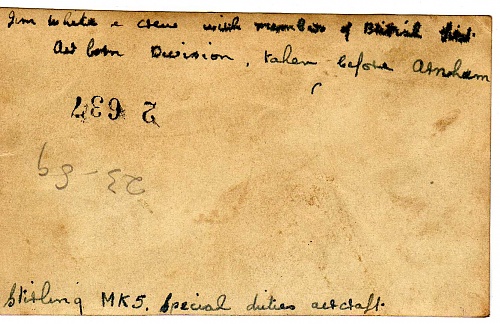 Jim White & crew with members of British first
Air born Division, taken before Arnhem
2 637
23-Eg
Stirling MK5. Special duties aircraft.